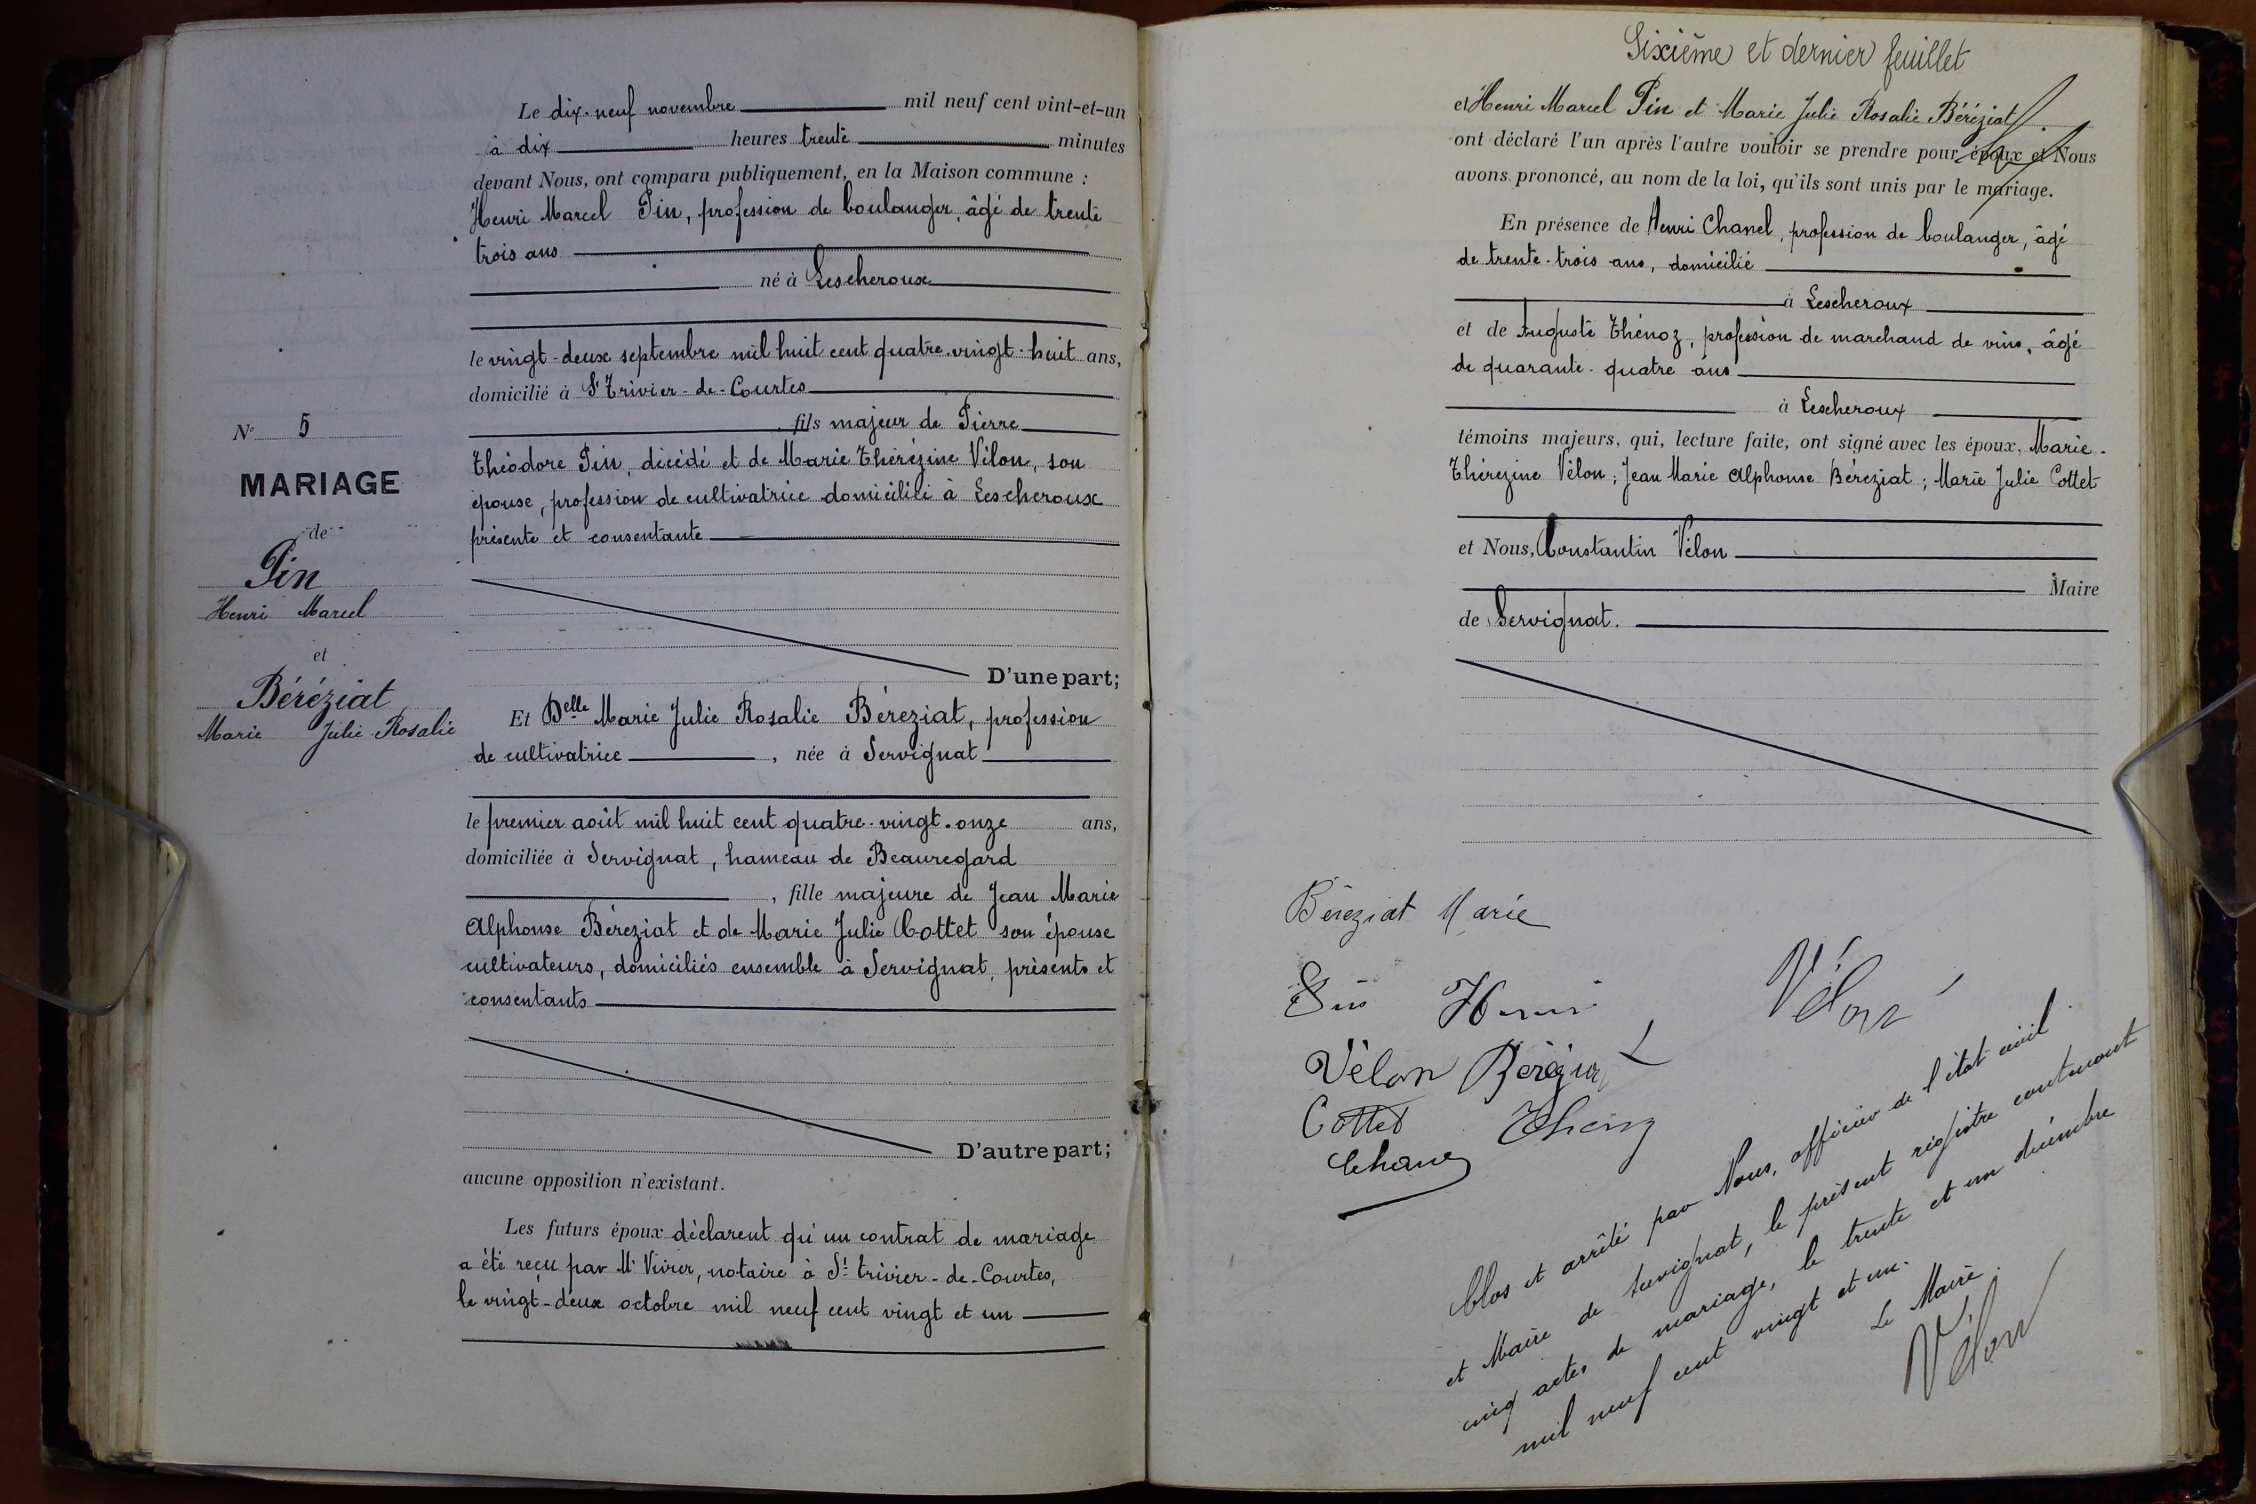 Le dix-neuf novembre mil neuf cent vint-et-un
à dix heures trente minutes
devant Nous, ont comparu publiquement, en la Maison commune :
Henri Marcel Pin, profession de boulanger, âgé de trente
trois ans
né à Lescheroux
le vingt-deux septembre mil huit cent quatre-vingt-huit ans,
domicilié à St Trivier-de-Courtes
fils majeur de Pierre
Théodore Pin, décédé et de Marie Thérézine Vélon, son
épouse, profession de cultivatrice domicilili à Lescheroux
présente et consentante
D'une part;
N° 5
MARIAGE
de
Pin
Henri Marcel
et
Béréziat
Marie Julie Rosalie
Et Delle Marie Julie Rosalie Béréziat, profession
de cultivatrice, née à Servignat
le premier août mil huit cent quatre-vingt-onze ans,
domiciliée à Servignat, hameau de Beauregard
, fille majeure de Jean Marie
Alphonse Béréziat et de Marie Julie Cottet son épouse
cultivateurs, domiciliés ensemble à Servignat, présents et
consentants
D'autre part;
aucune opposition n'existant.
Les futurs époux déclarent qu'un contrat de mariage
a été reçu par Me, notaire à St trivier-de-Courtes,
le vingt-deux octobre mil neuf cent vingt et un
Sixième et dernier feuillet
et Henri Marcel Pin et Marie Julie Rosalie Béréziat
ont déclaré l'un après l'autre vouloir se prendre pour époux et Nous
avons prononcé, au nom de la loi, qu'ils sont unis par le mariage.
En présence de Henri Chanel, profession de boulanger, âgé
de trente-trois ans, domicilié
à Lescheroux
et de Auguste Thénoz, profession de marchand de vins, âgé
de quarante-quatre ans
à Lescheroux
témoins majeurs, qui, lecture faite, ont signé avec les époux, Marie-
Thérezine Vélon; Jean Marie Alphonse Béréziat; Marie Julie Cottet
et Nous, Constantin Vélon
Maire
de Servignat.
Béreziat Marie
Pin Henri
Vélon
Vélon Béréziat
Cottet Thénoz
Chanel
Clos et arrêté par Nous, officier de l'état civil
et Maire de Servignat, le présent registre contenant
cinq actes de mariage, le trente et un décembre
mil neuf cent vingt et un.
Le Maire.
Vélon